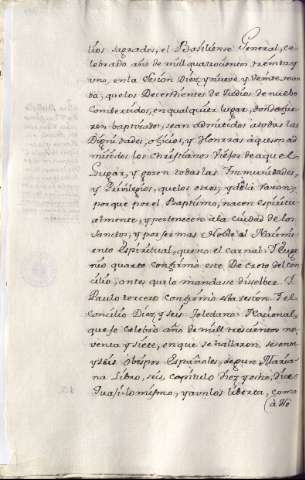 lios sagrados, el Basiliense General, ce-
lebrado año de mill quatrocientos treinta y
uno, en la Sesion Diez y nueve y Veinte
da, que los Decendientes de Judios de nuebo
Combertidos, en qualquier lugar, donde fue-
ron baptizados, sean admitidos a todas las
Dignidades, oficios, y Honras à que son ad
mitidos los Christianos Viejos de aquel
Lugar, y gozen todas las Immunidades,
y Privilegios, que los otros; y dà la razon,
porque por el Baptismo, nacen espiritu-
almente, y pertenecen à la ciudad de los
Santos, y por ser mas Noble el Nacimi-
ento Espiritual, que no el carnal. I Euge
nio quarto confirmò este Decreto del con
cilio, antes que lo mandase dissolber. I
Paulo tercero confirmò esta sesion. I el
Concilio Diez, y seis Toledano Nacional,
que se celebrò año de mill trescientos no-
venta y siete, en que se hallaron, sesenta
y seis Obispos Españoles, segun Maria-
na Libro, seis, capitulo diez y ocho, dice
lo mismo, y aun los liberta, como
à No